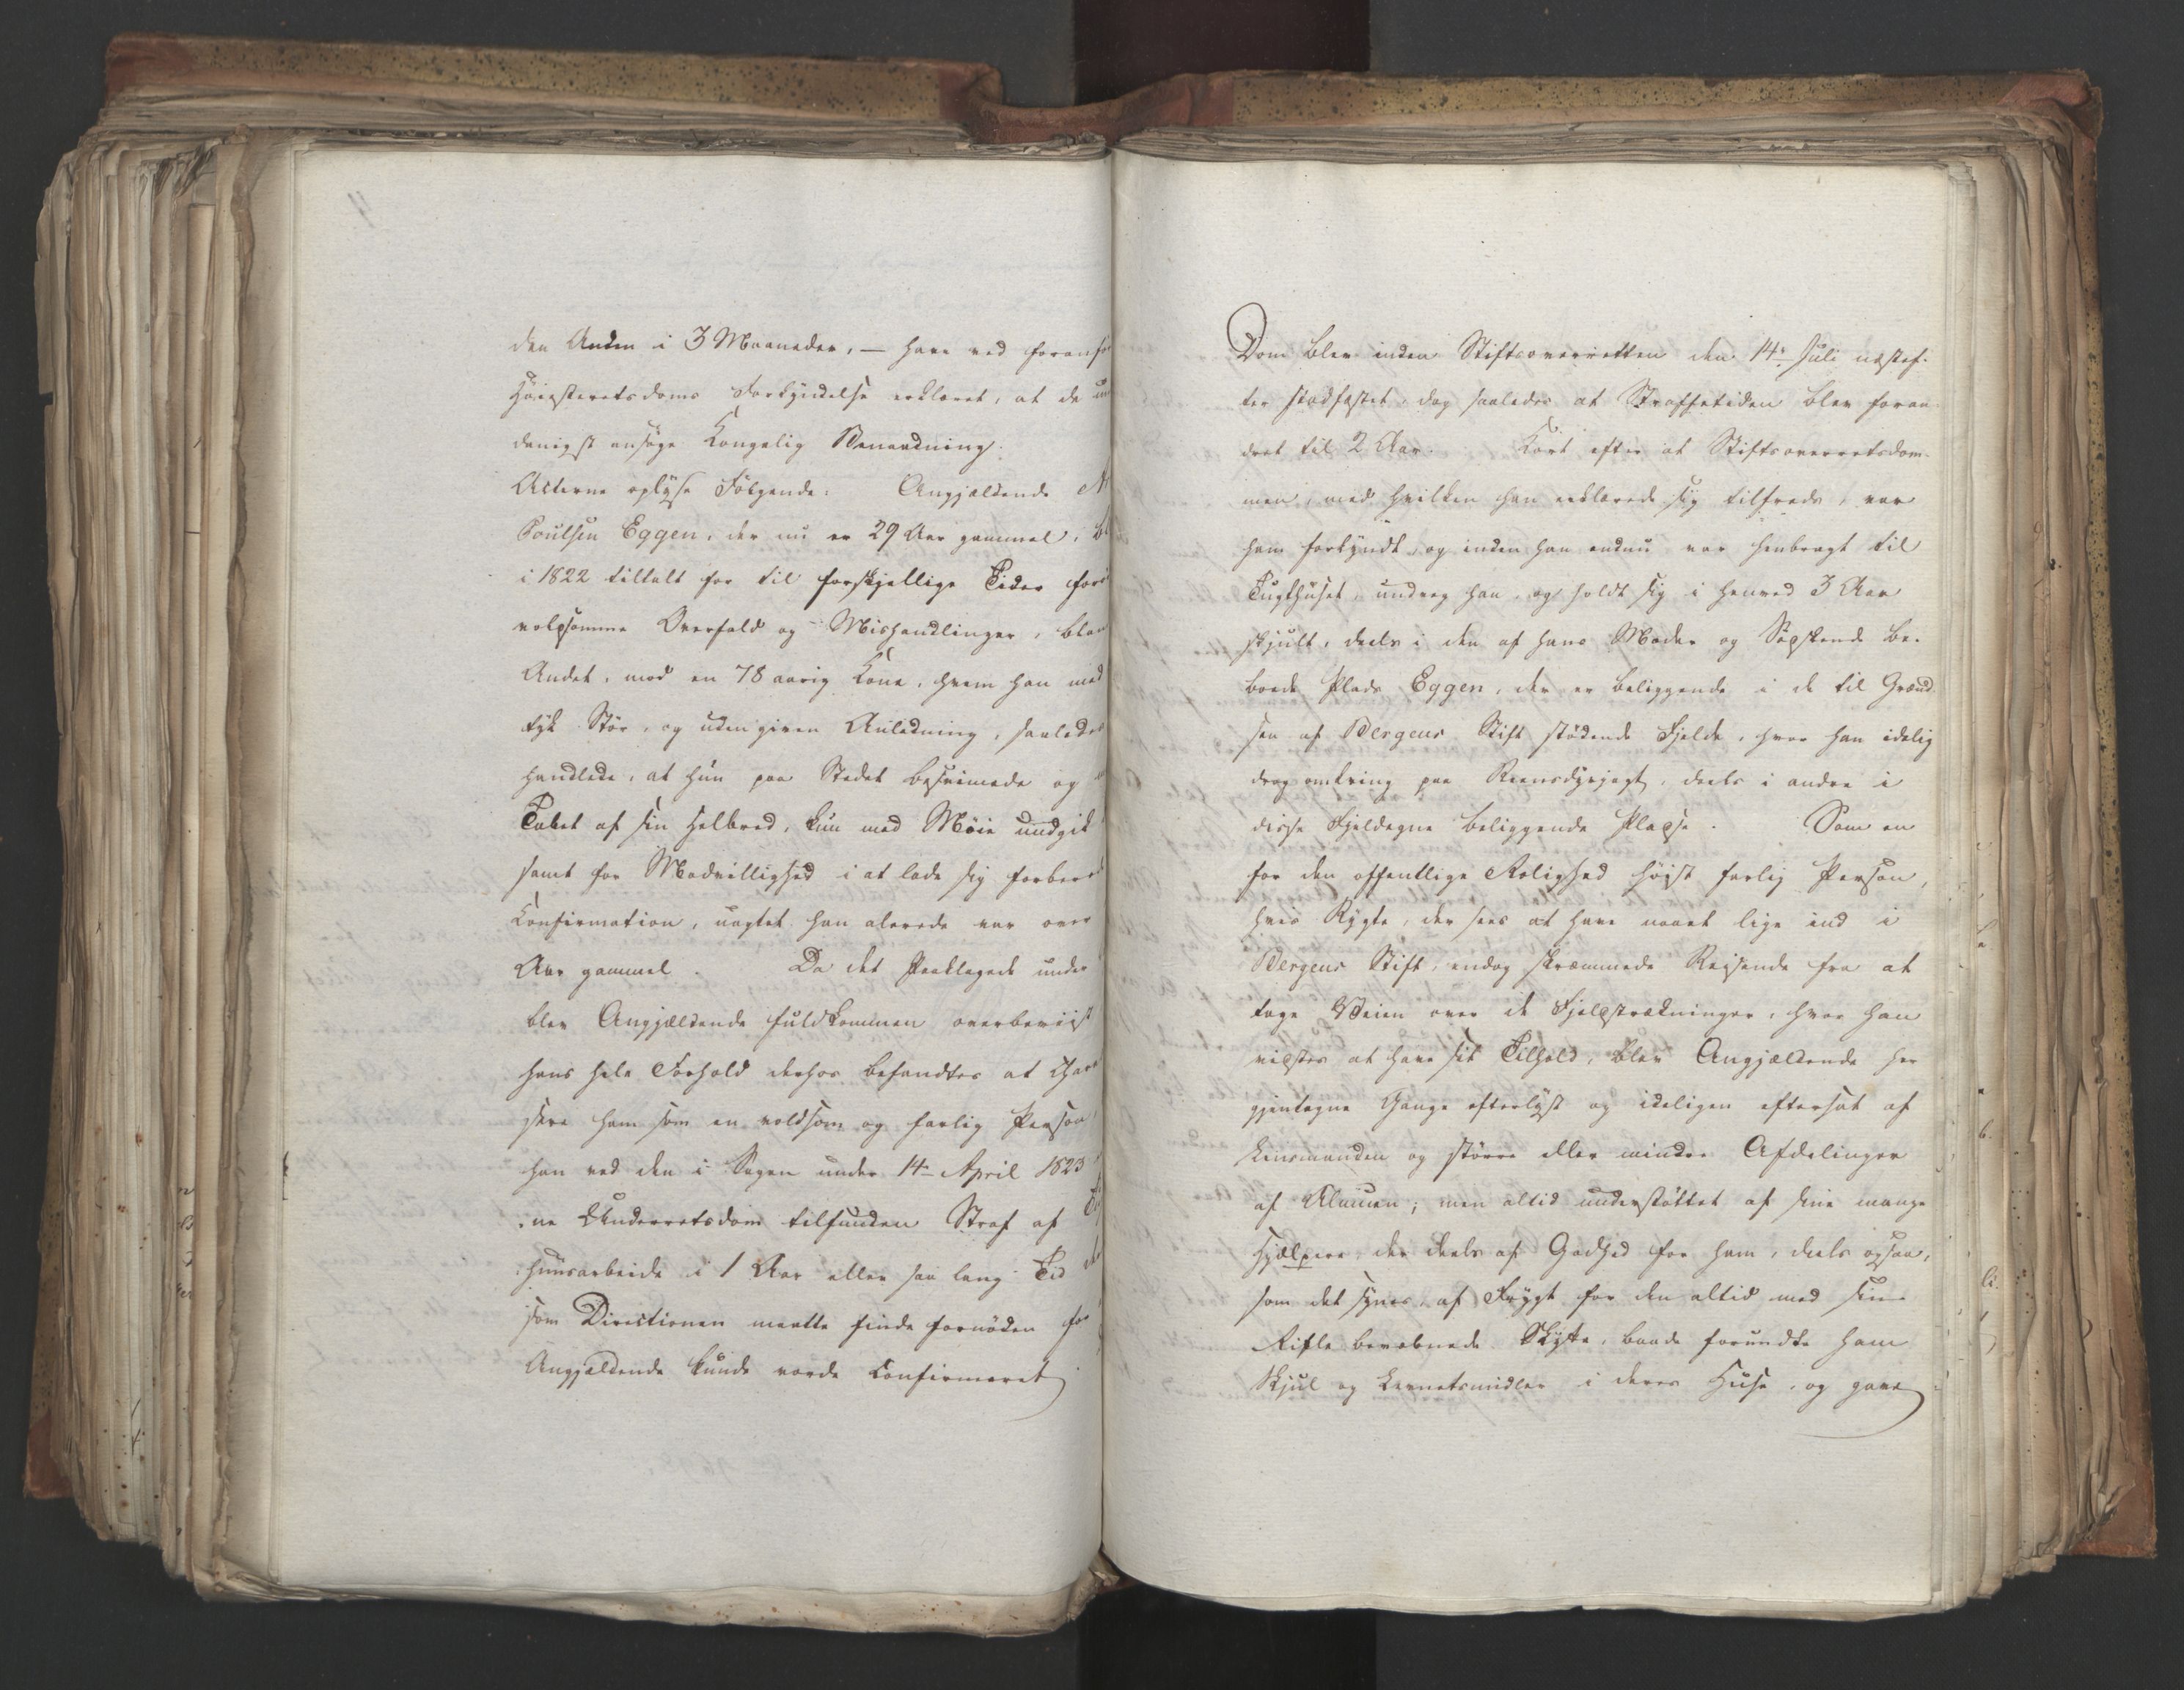 den Anden i 3 Maaneder, — have ved foranfø
Høiesteretsdoms Forkyndelse erklæret, at de un
danigst ansøge Kongelig Benaadning.
Acterne oplyse Følgende: Angjældende
Poulsen Eggen, der nu er 29 Aar gammel, bl
i 1822 tiltalt for til forskjellige Tider
voldsomme Overfald og Mishandlinger, blan
Andet, mod en 78 aarig Kone, hvem han med
tyk Stør, og uden given Anledning, saaledes
handlede, at hun paa Stedet besvimede og
Tabet af sin Helbred, kun med Møie undgik
samt for Modvillighed i at lade sig forbered
Confirmation, uagtet han alerede var over
Aar gammel. Da det Paaklagede under
blev Angjældende fuldkommen overbeviist
hans hele Forhold derhos befandtes at Chara
sere ham som en voldsom og farlig Person
han ved den i Sagen under 14de April 1823
ne Underretsdom tilfunden Straf af
huusarbeide i 1 Aar eller saa lang Tid
som Directionen maatte finde fornøden for
Angjældende kunde vorde Confirmeret
Dom blev inden Stiftsoverretten den 14de Juli næstef-
ter stadfæstet, dog saaledes at Straffetiden blev foran-
dret til 2 Aar. Kort efter at Stiftsoverretsdom-
men, med hvilken han erklærede sig tilfreds, var
ham forkyndt, og inden han endnu var henbragt til
Tugthuset, undveg han, og holdt sig i henved 3 Aar
skjult, deels i den af hans Moder og Søskende be-
boede Plads Eggen, der er beliggende i de til Grænd-
sen af Bergens Stift stødende Fjelde, hvor han idelig
drog omkring paa Reensdyrjagt, deels i andre i
disse Fjeldegne beliggende Pladse. Som en
for den offentlige Rolighed høist farlig Person,
hvis Rygte, der sees at have naaet lige ind i
Bergens Stift, endog skræmmede Reisende fra at
tage Veien over de Fjeldstrækninger, hvor han
vidstes at have sit Tilhold, blev Angjældende her
gjentagne Gange efterlyst og ideligen eftersat af
Lensmanden og større eller mindre Afdelinger
af Almuen; men altid understøttet af sine mange
Hjælpere, der deels af Godhed for ham, deels ogsaa,
som det synes, af Frygt for den altid med sin
Rifle bevæbnede Skytte, baade forundte ham
Skjul og Levnetsmidler i deres Huse, og gave